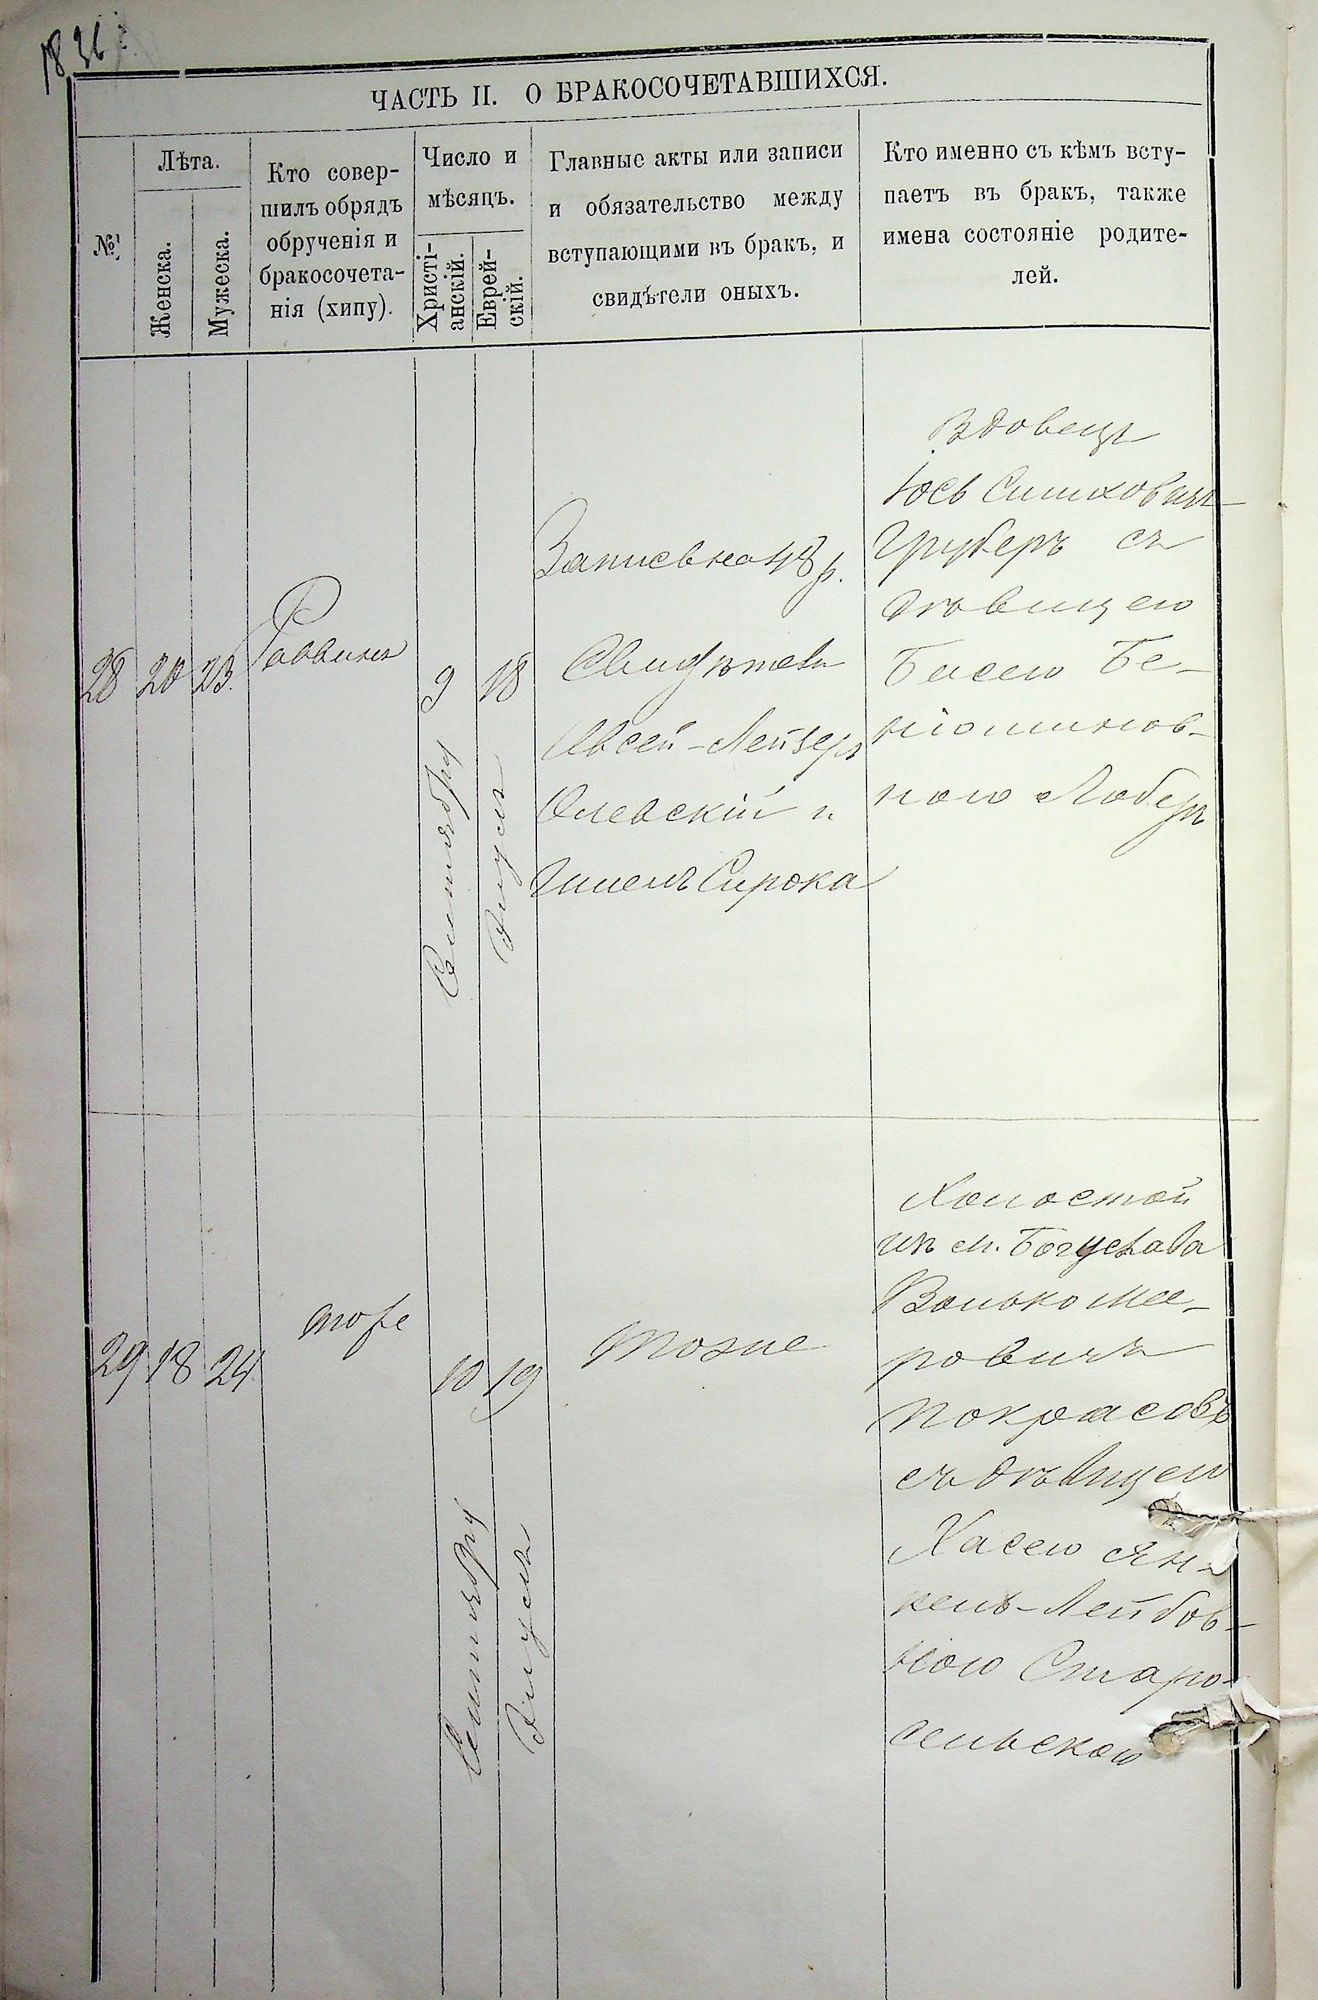 1836
ЧАСТЬ II. О БРАКОСОЧЕТАВШИХСЯ.
№
Лѣта.
Женска.
Мужеска.
Кто совер-
шилъ обрядъ
обрученія и
бракосочета-
нія (хипу).
Число и
мѣсяцъ.
Христі-
анскій.
Еврей-
скій.
Главные акты или записи
и обязательство между
вступающими въ бракъ, и
свидѣтели оныхъ.
Кто именно съ кѣмъ всту-
паетъ въ бракъ, также
имена состояніе родите-
лей.
28
20
23.
Раввинъ
9
Сентября
18
Элула
Запись на 48 р.
Свидѣтели
Овсей-Лейзеръ
Олевскій и
Гишель Сирока
Вдовецъ
Іось Симховичъ
Груберъ съ
дѣвицею
Бисею Бе-
ніоминов-
ною Лоберъ
29
18
24
тоже
10
Сентября
19
Элула
тоже
Холостой
изъ м. Богуслава
Волько Мее-
ровичъ
Покрасовъ
съ дѣвицею
Хасею Ян-
кель-Лейбов-
ною Старо-
сельскою